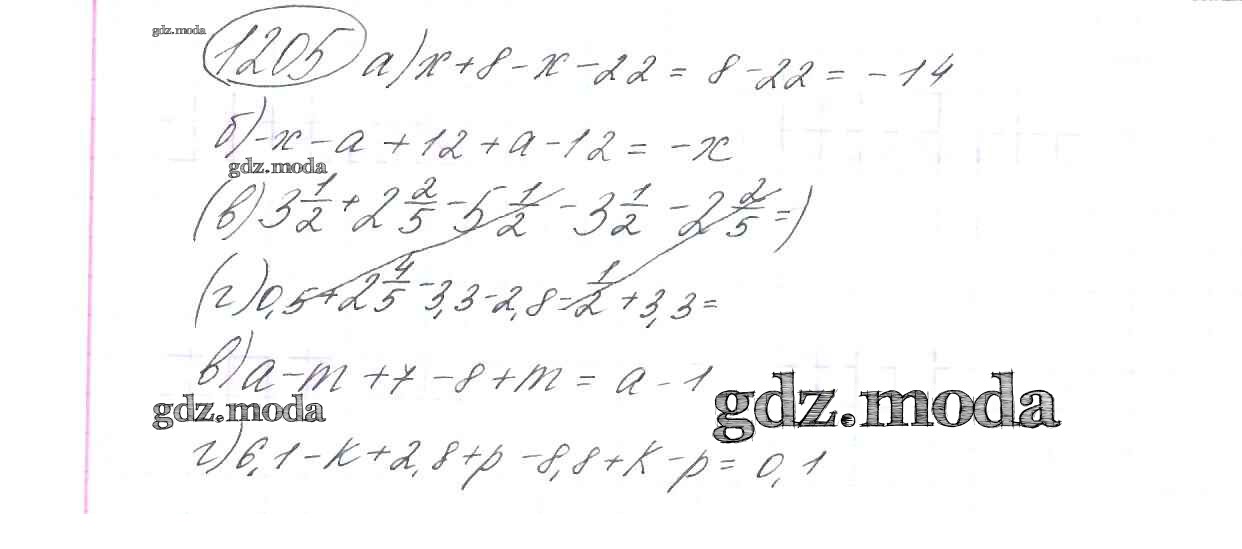 gdz.moda
1205 а) x + 8 - x - 22 = 8 - 22 = - 14
б) -x - a + 12 + a - 12 = -x
gdz.moda
(в) 3 1/2 + 2 2/5 - 5 1/2 - 3 1/2 - 2 2/5 =)
(г) 0,5 + 2 4/5 - 3,3 - 2,8 - 1/2 + 3,3 =
в) a - m + 7 - 8 + m = a - 1
gdz.moda gdz.moda
г) 6,1 - k + 2,8 + p - 8,8 + k - p = 0,1